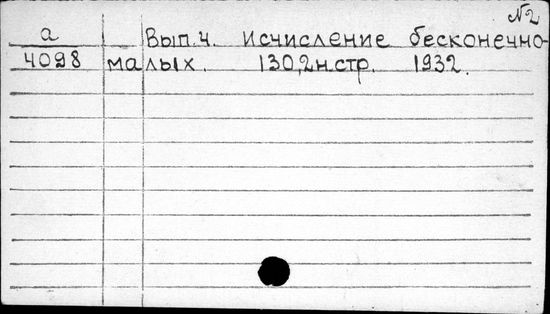 №2
а Вып.4. Исчисление бесконечно-
4098 малых. 130,2н.стр. 1932.